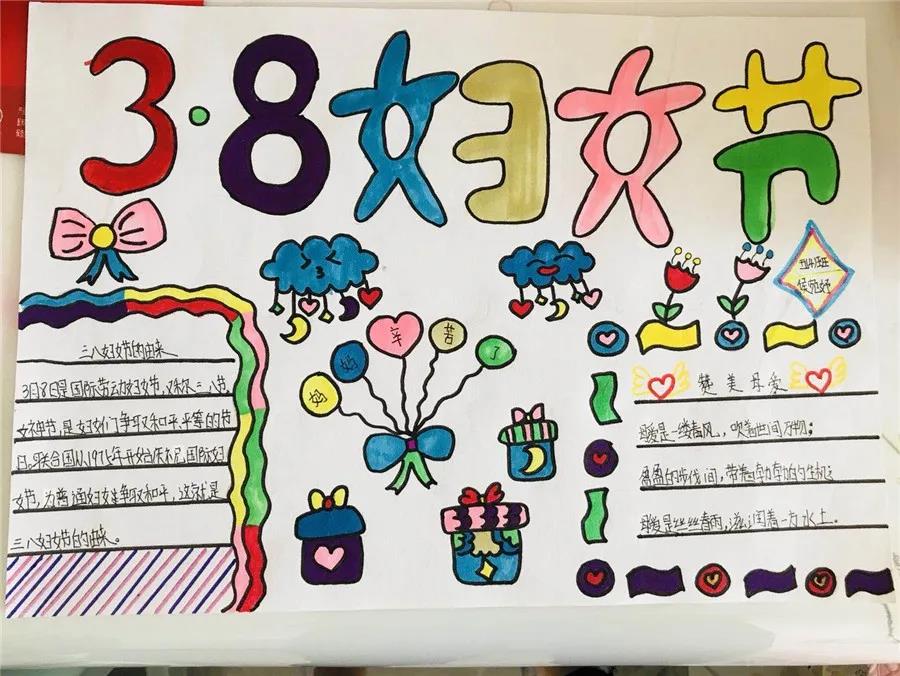 3·8妇女节
三八妇女节的由来
3月8日是国际劳动妇女节,又称三八节、
女神节,是妇女们争取和平、平等的节
日。联合国从1975年开始庆祝国际妇
女节,为普通妇女争取和平,这就是
三八妇女节的由来。
妈妈辛苦了
五年班
赞美母爱
母爱是一缕春风,吹着世间万物;
盈盈的步伐间,带着勃勃的生机。
母爱是丝丝春雨,滋润着一方水土。